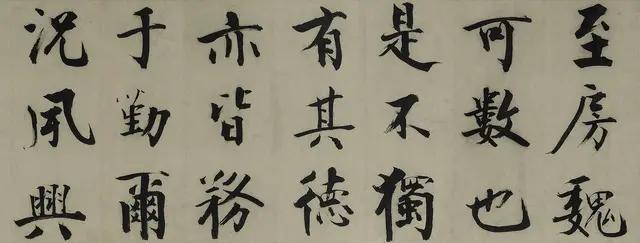 至房魏
可數也
是不獨
有其德
亦皆務
于勤爾
況夙興